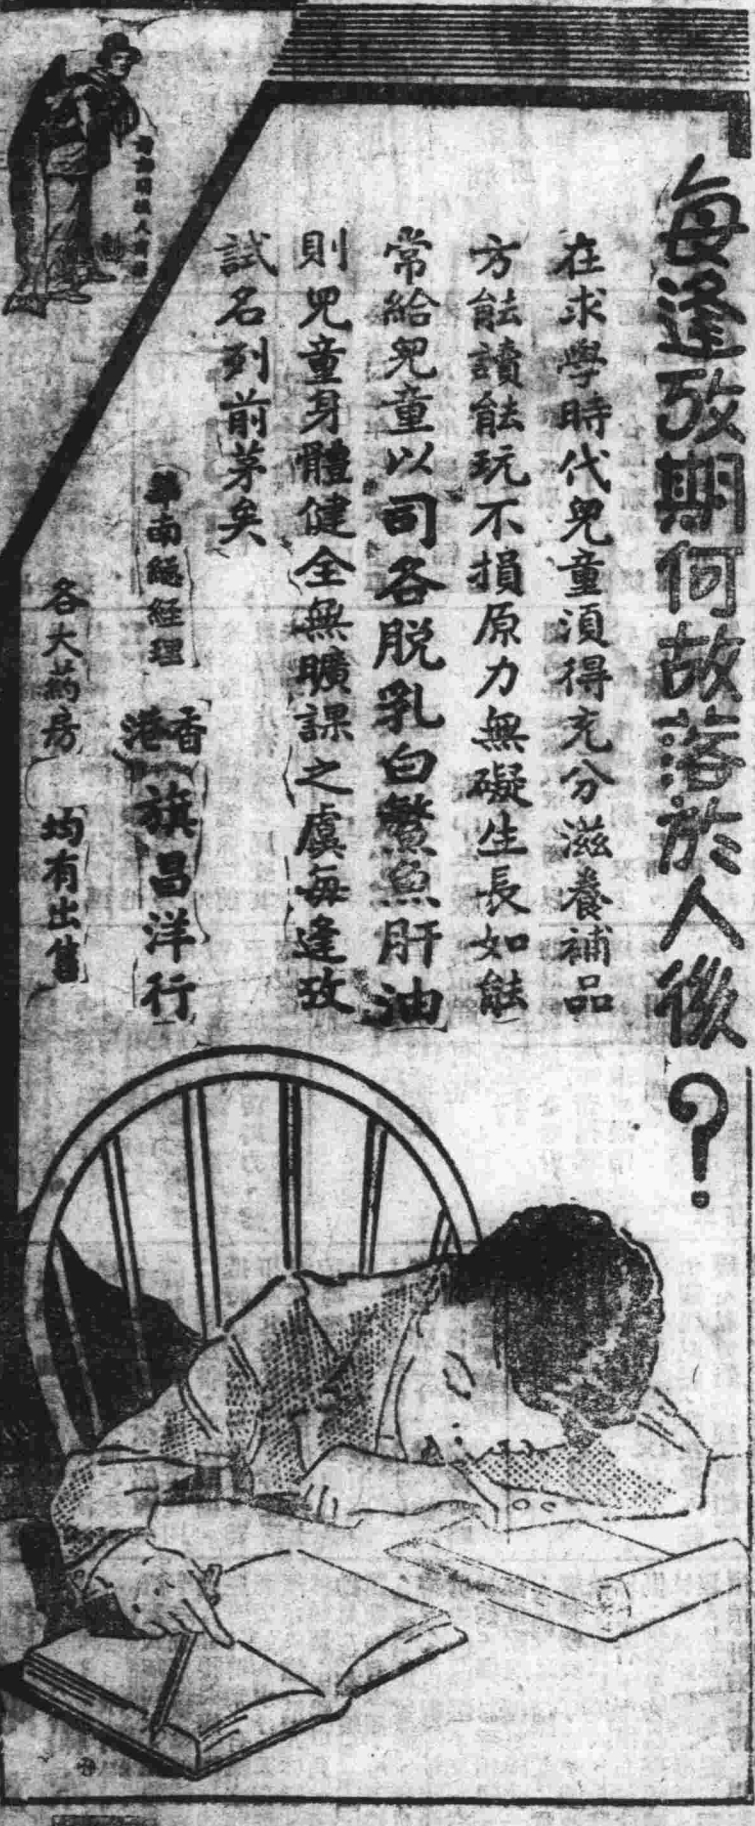 每逢攷期何故落於人後？
在求學時代兒童須得充分滋養補品
方能讀能玩不損原力無礙生長如能
常給兒童以司各脫乳白鰵魚肝油
則兒童身體健全無曠課之虞每逢攷
試名列前茅矣
華南總經理 香港 旗昌洋行
各大葯房 均有出售